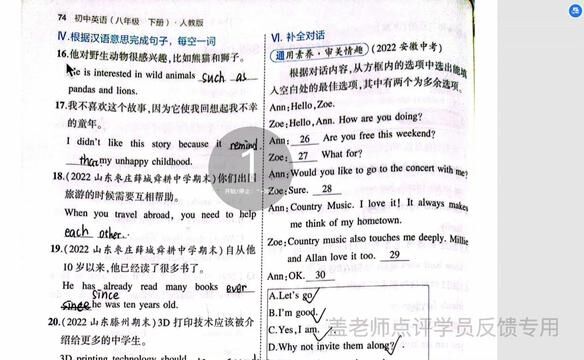 74 初中英语(八年级 下册)·人教版
Ⅳ.根据汉语意思完成句子，每空一词
16.他对野生动物很感兴趣，比如熊猫和狮子。
He is interested in wild animals such as
pandas and lions.
17.我不喜欢这个故事，因为它使我回想起我不幸
的童年。
I didn't like this story because it remind
my unhappy childhood.
18.(2022 山东枣庄薛城舜耕中学期末)你们出国
旅游的时候需要互相帮助。
When you travel abroad, you need to help
each other.
19.(2022 山东枣庄薛城舜耕中学期末)自从他
10 岁以来，他已经读了很多书了。
He has already read many books ever
since
since he was ten years old.
20.(2022 山东滕州期末)3D 打印技术应该被介
绍给更多的中学生。
3D printing technology should
1
开始/停止
Ⅵ. 补全对话
通用素养·审美情趣 (2022 安徽中考)
根据对话内容，从方框内的选项中选出能填
入空白处的最佳选项，其中有两个为多余选项。
Ann:Hello,Zoe.
Zoe:Hello,Ann. How are you doing?
Ann: 26 Are you free this weekend?
Zoe: 27 What for?
Ann:Would you like to go to the concert with me?
Zoe:Sure. 28
Ann:Country Music. I love it! It always makes
me think of my hometown.
Zoe:Country music also touches me deeply. Millie
and Allan love it too. 29
Ann:OK. 30
A.Let's go
B.I'm good.
C.Yes,I am.
D.Why not invite them along?
盖老师点评学员反馈专用